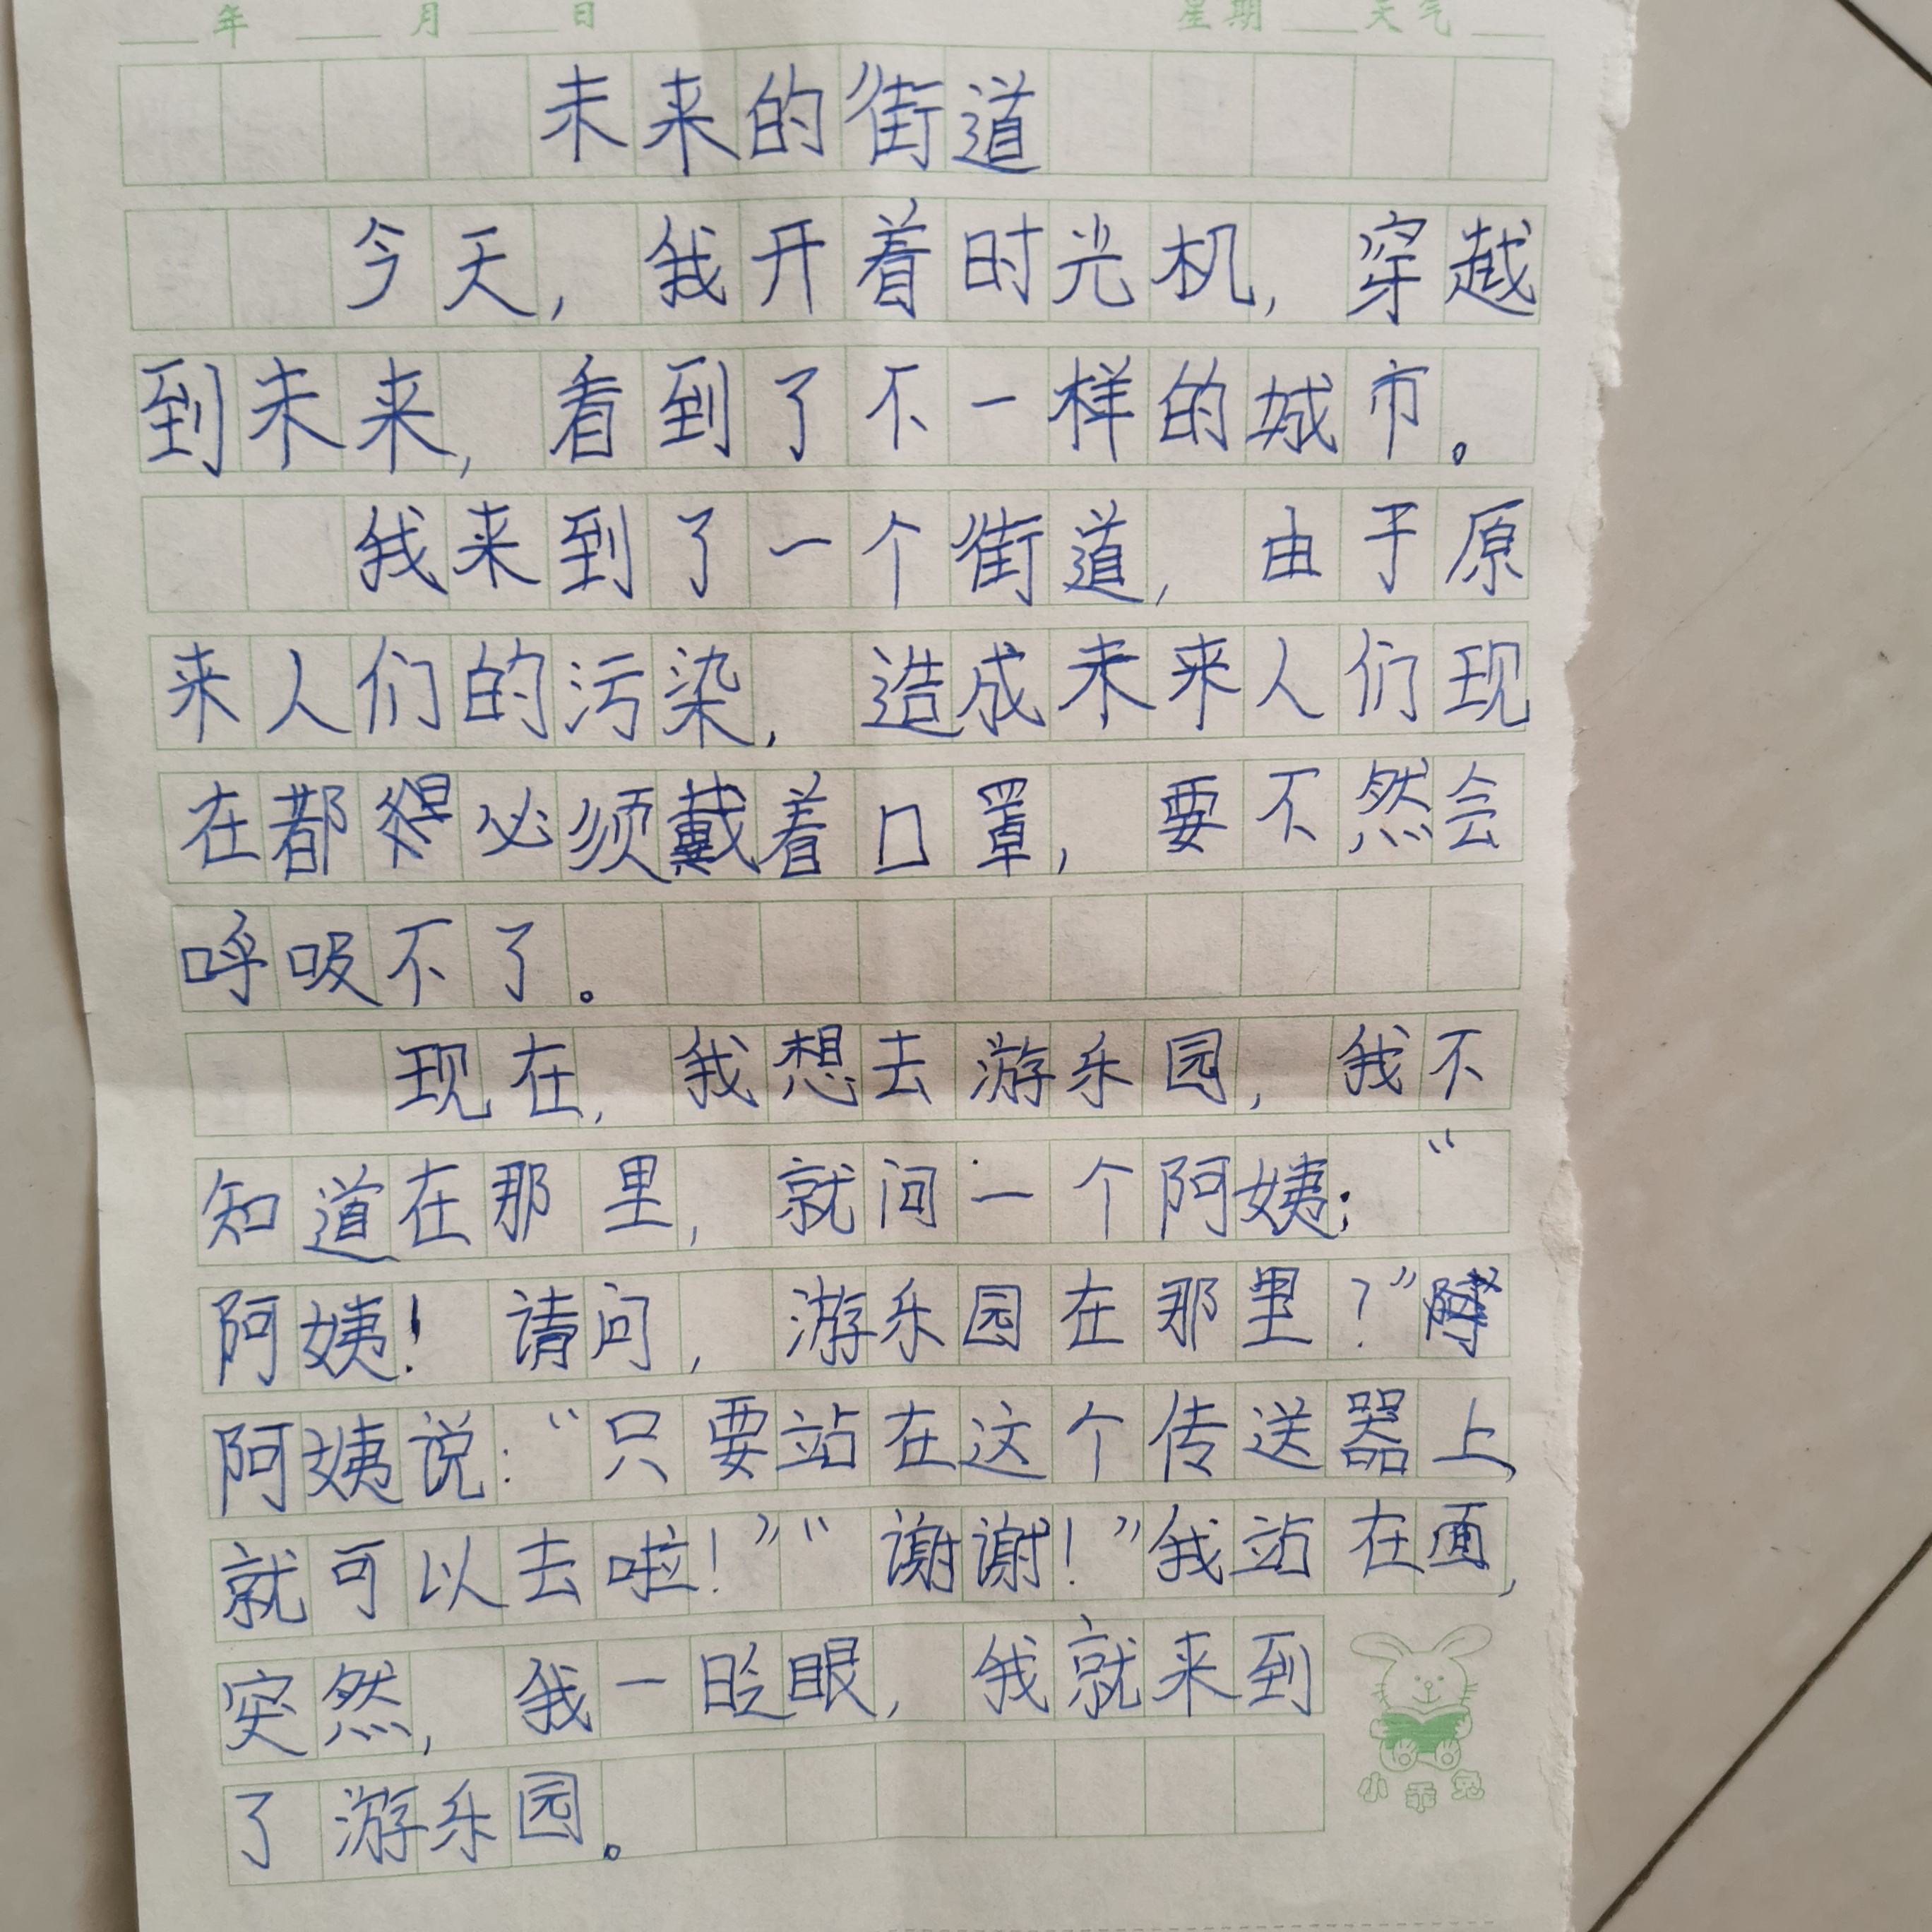 年 月 日 星期 天气
未来的街道
今天，我开着时光机，穿越
到未来，看到了不一样的城市。
我来到了一个街道，由于原
来人们的污染，造成未来人们现
在都得必须戴着口罩，要不然会
呼吸不了。
现在，我想去游乐园，我不
知道在那里，就问一个阿姨：“
阿姨！请问，游乐园在那里？”
阿姨说：“只要站在这个传送器上，
就可以去啦！”“谢谢！”我站在面，
突然，我一眨眼，我就来到
了游乐园。
小乖兔